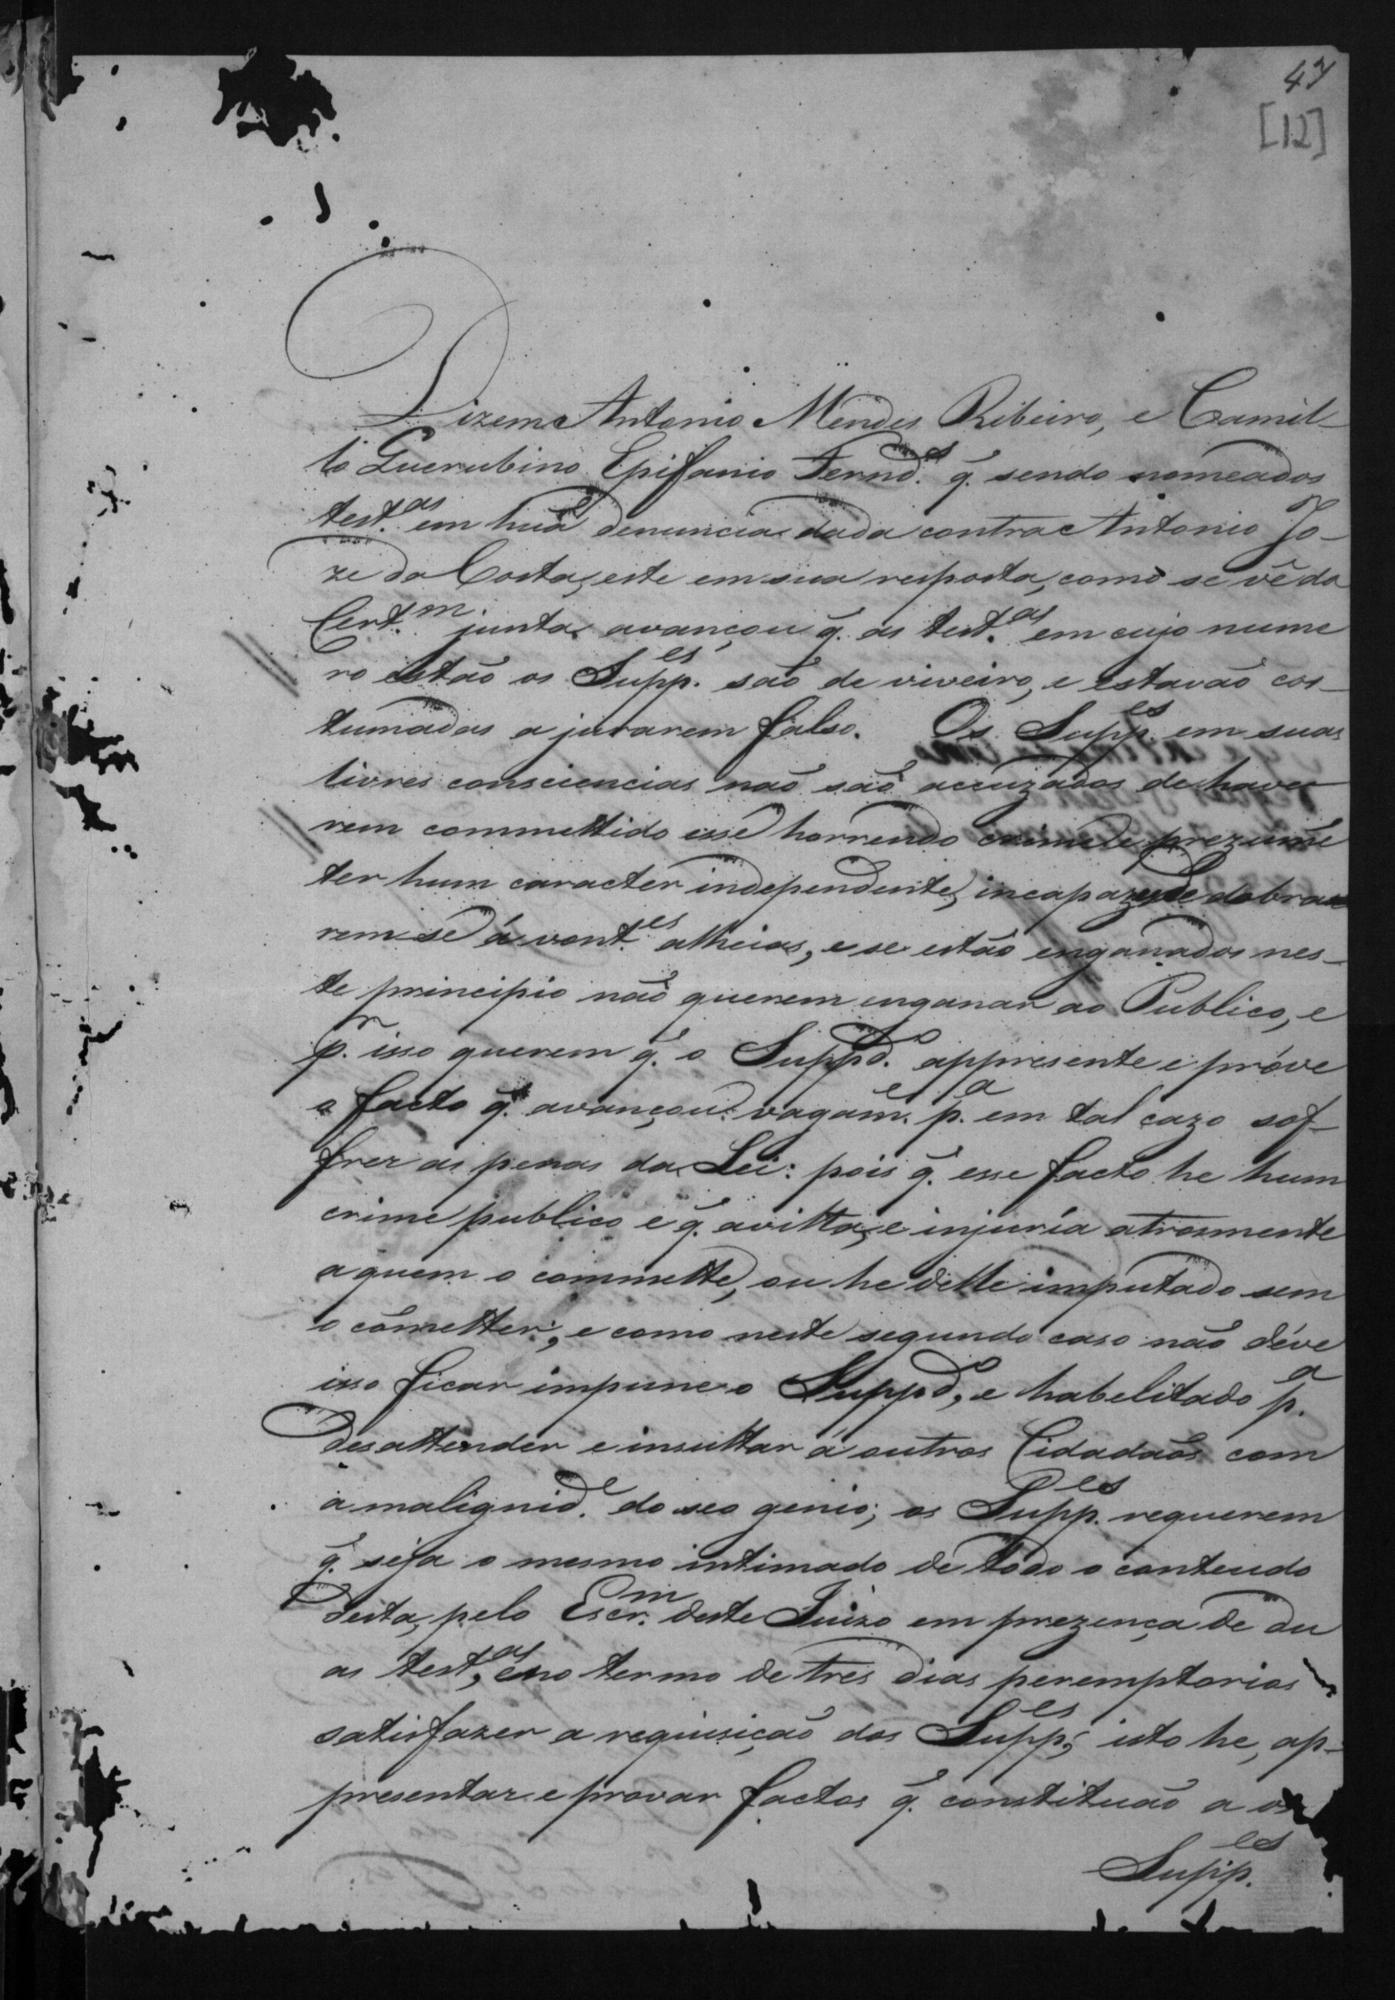 47
[12]
Dizem Antonio Mendes Ribeiro, e Camil-
lo Querubino Epifanio Fernd.s q. sendo nomeados
test.as em huã denuncia dada contra Antonio Jo-
ze da Costa, este em sua resposta, como se vê da
Cert.m junta avançou q. as test.as em cujo nume
ro estão os Supp.es são de viveiro, e estavão cos-
tumadas a jurarem falso. Os Supp.es em suas
livres consciencias não são accuzados de have-
rem commettido esse horrendo crime e prezume
ter hum caracter independente, incapaz de dobra
rem-se á vont.es alheias, e se estão enganados nes-
te principio não querem enganar ao Publico, e
p.r isso querem q. o Suppd.o appresente e próve
o facto q. avançou vagam.e p.a em tal cazo sof-
frer as penas da Lei: pois q. esse facto he hum
crime publico e q. avilta, e injuría atrosmente
a quem o commette, ou he delle imputado sem
o cometter; e como neste segundo caso não déve
isso ficar impune o Suppd.o, e habelitado p.a
desattender e insultar á outros Cidadãos com
a malignid.e do seo genio; os Supp.es requerem
q. seja o mesmo intimado de todo o conteudo
desta, pelo Escr.m deste Juizo em prezença de du
as test.as, e no termo de tres dias peremptorios
satisfazer a requisição dos Supp.es; isto he, ap-
presentar e provar factos q. constituão a os
Supp.es